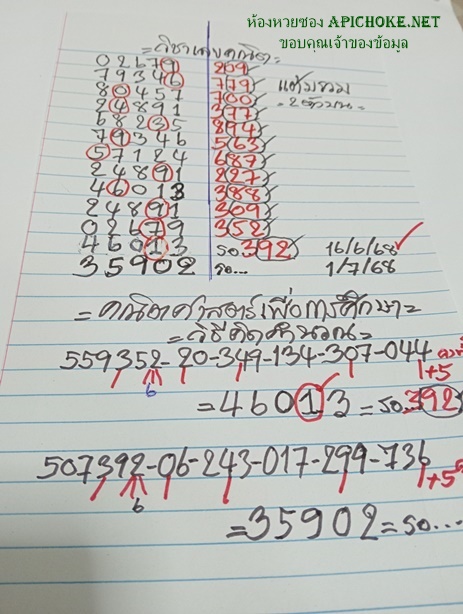 ห้องหวยซอง APICHOKE.NET
ขอบคุณเจ้าของข้อมูล
=วิชาเลขคณิต=
02679 209
79346 779 แต้มรวม
80457 700 =2ตัวบน=
24891 377
68235 894
79346 563
57124 687
24891 227
46013 388
24891 309
02679 352
46013 รอ.392 16/6/68
35902 รอ... 1/7/68
=คณิตศาสตร์เพื่อการศึกษา=
=วิธีคิดคำนวณ=
559352-20-349-134-307-044
6 1+5
=46013=รอ.392
507392-06-243-017-299-736
6 1+5
=35902=รอ...